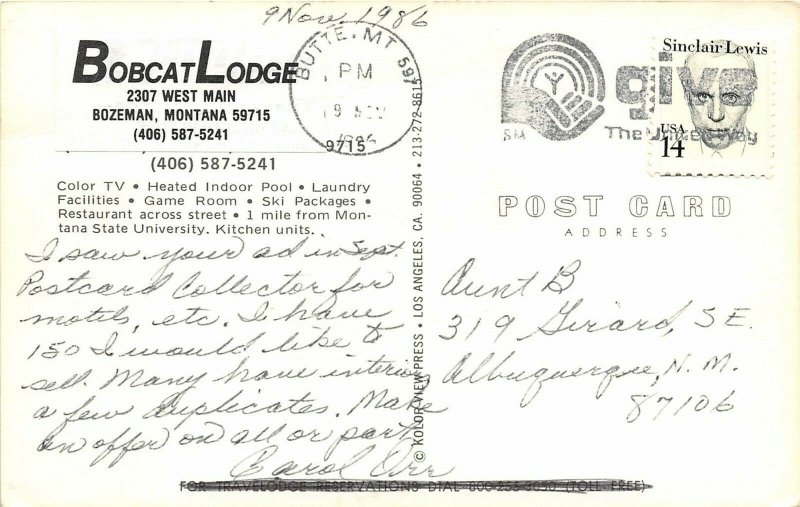 9 Nov. 1986
BOBCAT LODGE
2307 WEST MAIN
BOZEMAN, MONTANA 59715
(406) 587-5241
9715
(406) 587-5241
Color TV • Heated Indoor Pool • Laundry
Facilities • Game Room • Ski Packages •
Restaurant across street • 1 mile from Mon-
tana State University. Kitchen units.
I saw your ad in Sept.
Postcard Collector for
motels, etc. I have
150 I would like to
sell. Many have interiors
a few duplicates. Make
an offer on all or part.
Carol Orr
FOR TRAVELODGE RESERVATIONS DIAL 800-255-3050 (TOLL FREE)
© KOLOR VIEW PRESS • LOS ANGELES, CA. 90064 • 213-272-8615
BUTTE, MT 597
PM
9 NOV
1986
SM
give
The United Way
Sinclair Lewis
USA
14
POST CARD
ADDRESS
Aunt B
319 Girard, SE.
Albuquerque, N.M.
87106